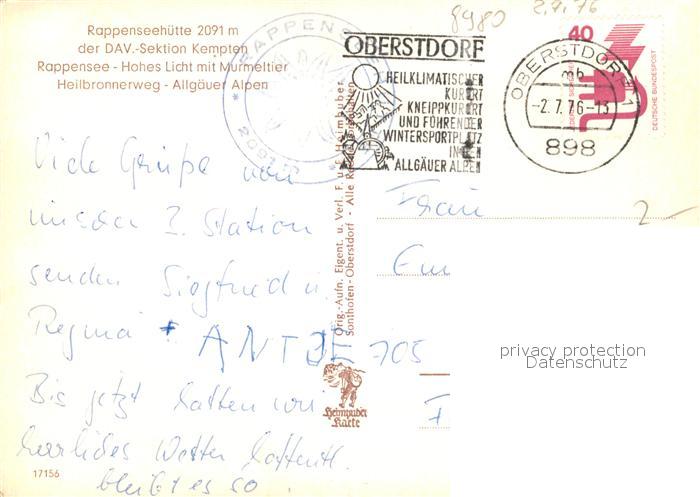 8980
2.7.76
Rappenseehütte 2091 m
der DAV.-Sektion Kempten
Rappensee - Hohes Licht mit Murmeltier
Heilbronnerweg - Allgäuer Alpen
RAPPENSEE
OBERSTDORF
HEILKLIMATISCHER
KURORT
KNEIPPKURORT
UND FÜHRENDER
WINTERSPORTPLATZ
IN DEN
ALLGÄUER ALPEN
40
DEUTSCHE BUNDESPOST
OBERSTDORF 1
mb
-2.7.76-13
898
Viele Grüße von
unserer 2. Station
senden Siegfried u.
Regina + ANTJE 705
Bis jetzt hatten wir
herrliches Wetter hoffentl.
bleibt es so.
Orig.-Aufn. Eigent. u. Verl. F. u. Heimhuber
Sonthofen-Oberstdorf - Alle
Heimhuber
Karte
Frau
2-
privacy protection
Datenschutz
17156